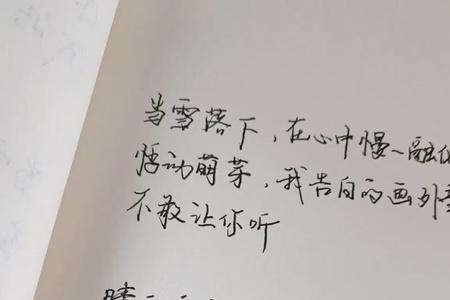 当雪落下，在心中慢々融
悸动萌芽，我告白的画外
不敢让你听